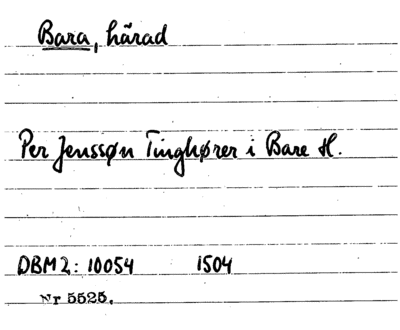 Bara, härad
Per Jenssøn Tinghører i Bare H.
DBM2: 10054 1504
Nr 5525.